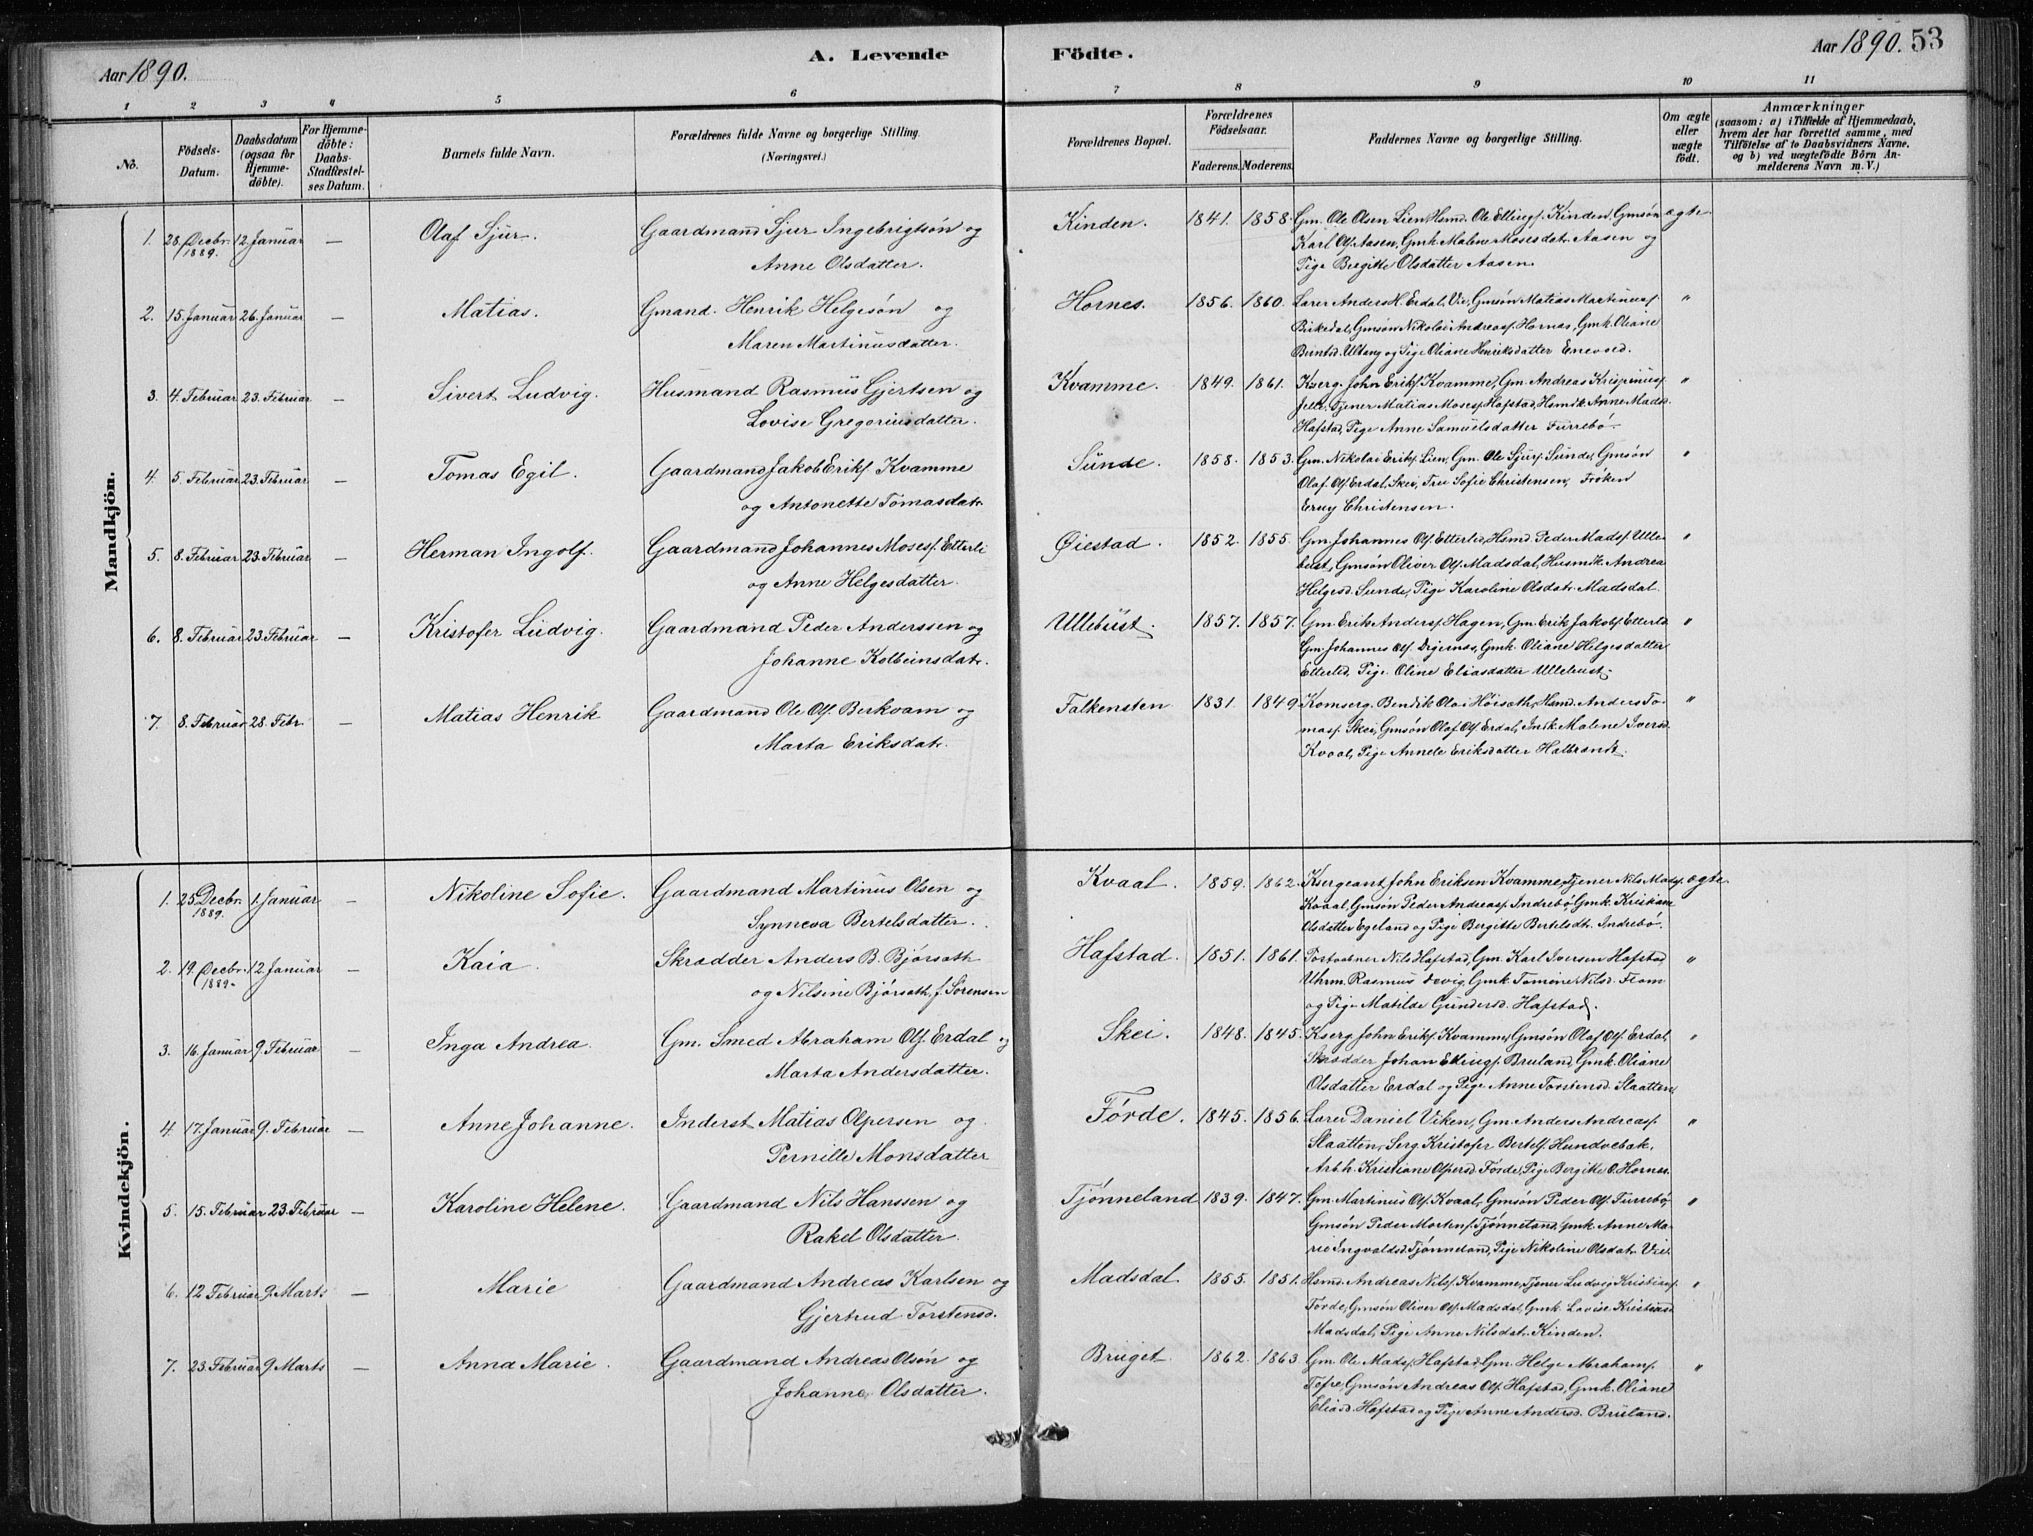 Aar 1890.
A. Levende Födte.
Aar 1890. 53
1 2 3 4 5 6 7 8 9 10 11
No.
Födsels-Datum.
Daabsdatum (ogsaa för Hjemme-döbte).
For Hjemme-döbte: Daabs-Stadfæstel-ses Datum.
Barnets fulde Navn.
Forældrenes fulde Navne og borgerlige Stilling. (Næringsvei.)
Forældrenes Bopæl.
Forældrenes Födselsaar.
Faderens. Moderens.
Faddernes Navne og borgerlige Stilling.
Om ægte eller uægte födt.
Anmærkninger (saasom: a) i Tilfælde af Hjemmedaab, hvem der har forrettet samme, med Tilföielse af to Daabsvidners Navne, og b) ved uægtefödte Börn An-melderens Navn m. V.)
Mandkjön.
1. 28. Decbr. 1889. 12. Januar — Olaf Sjur. Gaardmand Sjur Ingebrigtsøn og
Anne Olsdatter.
Kinden. 1841. 1858. Gm. Ole Olsen Lien, Hsmd. Ole Ellingsf. Kinden, Gmsøn ægte
Karl Olf. Aasen, Gmk. Malene Mosesdatr. Aasen og
Pige Bergitte Olsdatter Aasen.
2. 15. Januar 26. Januar — Matias. Gmand. Henrik Helgesøn og
Maren Martinusdatter.
Hornes. 1856. 1860. Lærer Anders H. Erdal, Vie, Gmsøn Matias Martinusf. "
Birkedal, Gmsøn Nikolai Andreasf. Hornes, Gmk. Oliane
Berntsd. Ultang og Pige Oliane Henriksdatter Enevold.
3. 4. Februar 23. Februar — Sivert Ludvig. Husmand Rasmus Gjertsen og
Lovise Gregoriusdatter.
Kvamme. 1849. 1861. Kserg. John Eriksf. Kvamme, Gm. Andreas Krispinusf. "
Jelle, Tjener Matias Mosesf. Hafstad, Hsmdk. Anne Madsd.
Hafstad, Pige Anne Samuelsdatter Furrebø.
4. 5. Februar 23. Februar — Tomas Egil. Gaardmand Jakob Eriksf. Kvamme
og Antonette Tomasdatr.
Sunde. 1858. 1853. Gm. Nikolai Eriksf. Lien, Gm. Ole Sjursf. Sunde, Gmsøn "
Olaf Olf. Erdal, Skei, Fru Sofie Christensen, Frøken
Christensen.
5. 8. Februar 23. Februar — Herman Ingolf. Gaardmand Johannes Mosesf. Etterli
og Anne Helgesdatter.
Øiestad. 1852. 1855. Gm. Johannes Olf. Etterlid, Hsmd. Peder Madsf. Ulle- "
bust, Gmsøn Oliver Olf. Madsdal, Husmk. Andrea
Helgesd. Sunde, Pige Karoline Olsdatr. Madsdal.
6. 8. Februar 23. Februar — Kristofer Ludvig. Gaardmand Peder Anderssen og
Johanne Kolbeinsdatr.
Ullebust. 1857. 1857. Gm. Erik Andersf. Hagen, Gm. Erik Jakobf. Etterld. "
Gm. Johannes Olf. Digernes, Gmk. Oliane Helgesdatter
Etterld, Pige Oline Eliasdatter Ullebust.
7. 8. Februar 28. Febr. — Matias Henrik Gaardmand Ole Olf. Berkvam og
Marta Eriksdatr.
Falkensten 1831. 1849. Komserg. Bendik Olai Høisæth, Hsmd. Anders To- "
masf. Skei, Gmsøn Olaf Olf. Erdal, Indk. Malene Iversd.
Kvaal, Pige Annele Eriksdatter Halbrendt.
Kvindekjön.
1. 25. Decbr. 1889. 1. Januar — Nikoline Sofie. Gaardmand Martinus Olsen og
Synneva Bertelsdatter.
Kvaal. 1859. 1862. Ksergeant John Eriksen Kvamme, Tjener Nils Madsf. ægte.
Kvaal, Gmsøn Peder Andreasf. Indrebø, Gmk. Kristiane
Olsdatter Egeland og Pige Bergitte Bertelsdtr. Indrebø.
2. 19. Decbr. 1889. 12. Januar — Kaia. Skrædder Anders B. Bjørsæth
og Nilsine Bjørsæth, f. Sørensen
Hafstad. 1851. 1861. Postaabner Nils Hafstad, Gm. Karl Iversen Hafstad "
Uhrm. Rasmus Devig, Gmk. Tomine Nilsd. Flom
og Pige Matilde Gundersd. Hafstad.
3. 16. Januar 9. Februar — Inga Andrea. Gm. Smed Abraham Olf. Erdal og
Marta Andersdatter.
Skei. 1848. 1845. Kserg John Eriksf. Kvamme, Gmsøn Olaf Olf. Erdal, "
Skrædder Johan Ellingsf. Bruland, Gmk. Oliane
Olsdatter Erdal og Pige Anne Torstensd. Slaatten.
4. 17. Januar 9. Februar — Anne Johanne. Inderst Matias Olpersen og
Pernille Monsdatter
Førde. 1845. 1856. Lærer Daniel Viken, Gm. Anders Andreasf. "
Slaatten, Serg. Kristofer Bertelf. Hundvebak,
Arb.k. Kristiane Olpersd. Førde, Pige Bergitte O. Hornes.
5. 15. Februar 23. Februar — Karoline Helene. Gaardmand Nils Hanssen og
Rakel Olsdatter.
Tjønneland 1839. 1847. Gm. Martinus Olf. Kvaal, Gmsøn Peder Olf. Furrebø, "
Gmsøn Peder Mortenf. Tjønneland, Gmk. Anne Ma-
rie Ingvaldsd. Tjønneland, Pige Nikoline Olsdatr. Vie.
6. 12 Februar 9. Marts — Marie Gaardmand Andreas Karlsen og
Gjertrud Torstensd.
Madsdal 1855. 1851. Hsmd. Andreas Nilsf. Kvamme, Tjener Ludvig Kristianf. "
Førde, Gmsøn Oliver Olf. Madsdal, Gmk. Lovise Kristensd.
Madsdal, Pige Anne Nilsdatr. Kinden.
7. 23. Februar 9. Marts — Anna Marie. Gaardmand Andreas Olsøn og
Johanne Olsdatter.
Bruget. 1862. 1863. Gm. Ole Madsf. Hafstad, Gm. Helge Abrahamf. "
Tofte, Gmsøn Andreas Olf. Hafstad, Gmk. Oliane
Eliasd. Hafstad og Pige Anne Andersd. Bruland.